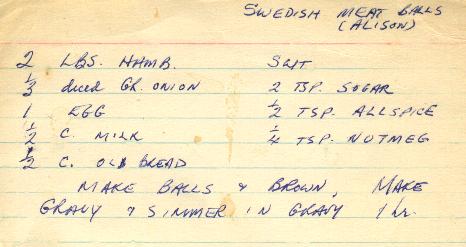 SWEDISH MEAT BALLS
(ALISON)
2 LBS. HAMB. SALT
1/3 diced GR. ONION 2 TSP. SUGAR
1 EGG 1/2 TSP. ALLSPICE
1/2 C. MILK 1/4 TSP. NUTMEG
1/2 C. OLD BREAD
MAKE BALLS & BROWN, MAKE
GRAVY & SIMMER IN GRAVY 1 hr.